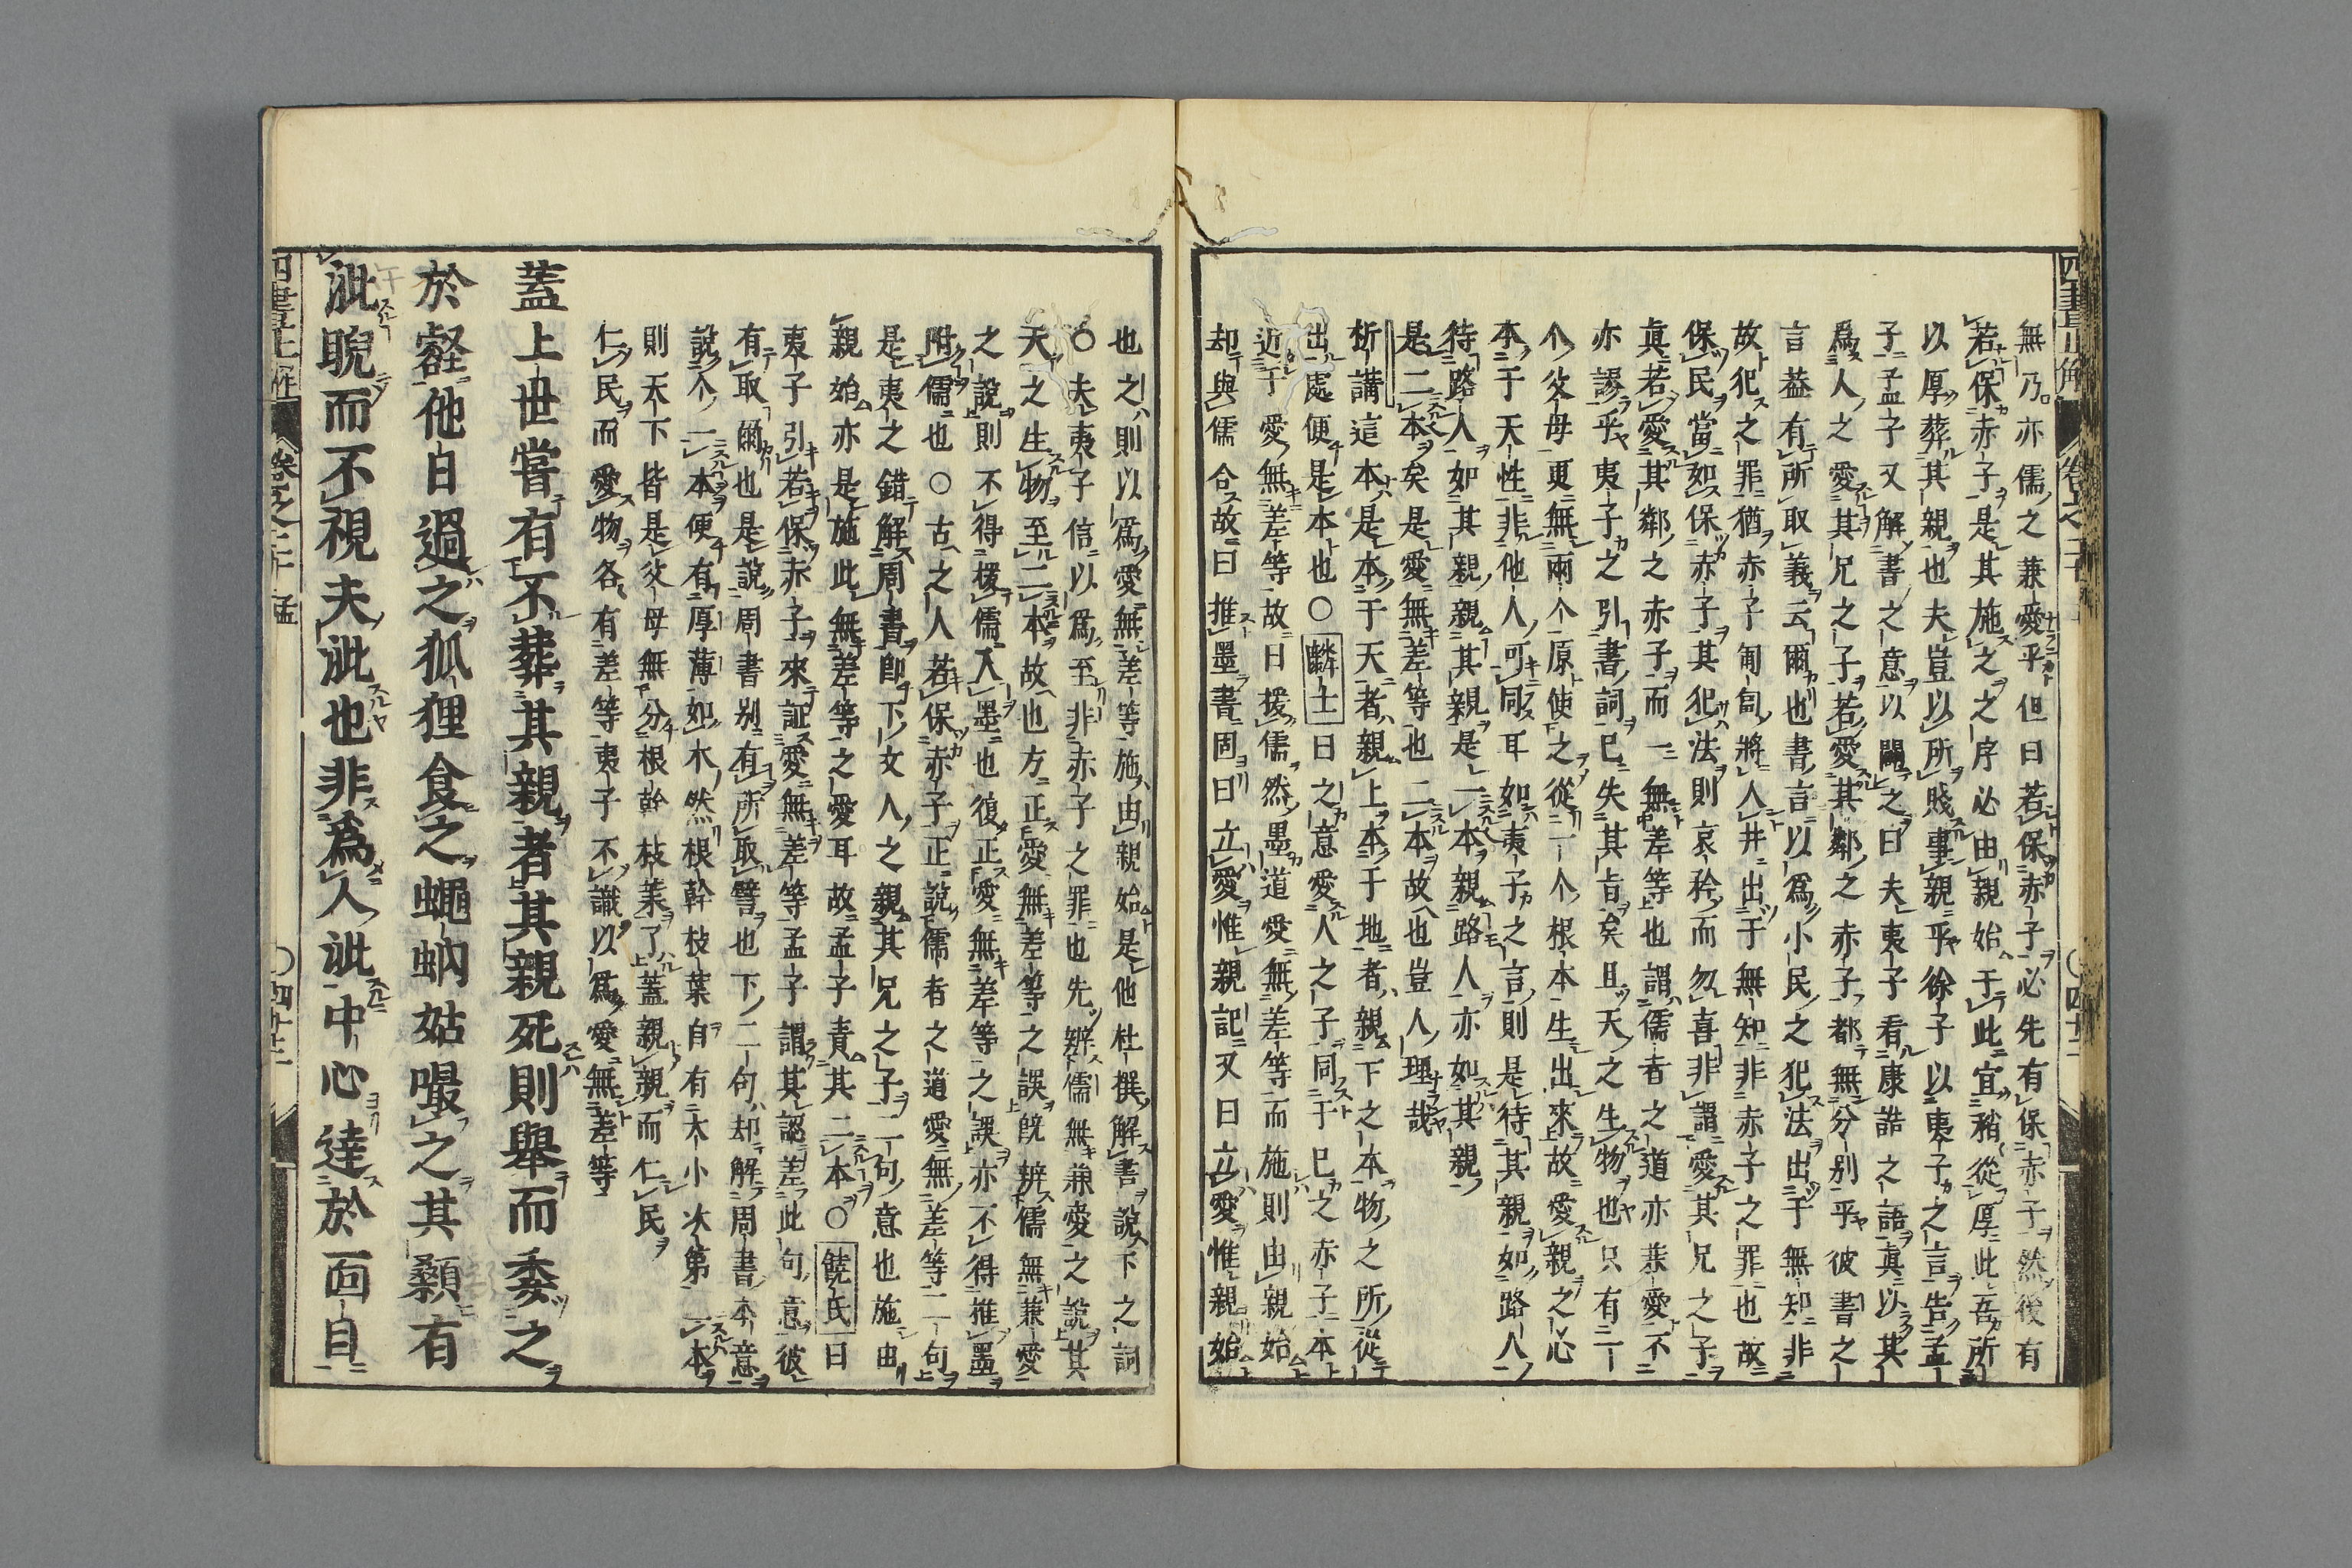 無乃亦儒之兼愛乎但曰若保赤子必先有保赤子然後有
若保赤子是其施之之序必由親始于此宜稍從厚此吾所
以厚葬其親也夫豈以所賤事親乎徐子以夷子之言告孟
子孟子又解書之意以闢之曰夫夷子看康誥之語真以其
爲人之愛其兄之子若愛其鄰之赤子都無分別乎彼書之
言葢有所取義云爾也書言以爲小民之犯法出于無知非
故犯之罪猶赤子匍匐將入井出于無知非赤子之罪也故
保民當如保赤子其犯法則哀矜而勿喜非謂愛其兄之子
真若愛其鄰之赤子而一無差等也謂儒者之道亦兼愛不
亦謬乎夷子之引書詞已失其旨矣且天之生物也只有一
个父母更無兩个原使之從一个根本生出來故愛親之心
本于天性非他人可同耳如夷子之言則是待其親如路人
待路人如其親親其親是一本親路人亦如其親
是二本矣是愛無差等也二本故也豈人理哉
析講這本是本于天者親上本于地者親下之本物之所從
出處便是本也○麟士曰之意愛人之子同于已之赤子本
近于愛無差等故曰援儒然墨道愛無差等而施則由親始
却與儒合故曰推墨書固曰立愛惟親記又曰立愛惟親始
也之則以爲愛無差等施由親始是他杜撰解書說下之詞
○夫夷子信以爲至非赤子之罪也先辨儒無兼愛之說其
天之生物至二本故也方正愛無差等之誤既辨儒無兼愛
之說則不得援儒入墨也復正愛無差等之誤亦不得推墨
附儒也○古之人若保赤子正說儒者之道愛無差等二句
是夷之錯解周書卽下文人之親其兄之子二句意也施由
親始亦是施此無差等之愛耳故孟子責其二本○饒氏曰
夷子引若保赤子來証愛無差等孟子謂其認差此句意彼
有取爾也是說周書別有所取譬也下二句却解周書本意
說个一本便有厚薄如木然根幹枝葉自有大小次第二本
則天下皆是父母無分根幹枝葉了蓋親親而仁民
仁民而愛物各有差等夷子不識以爲愛無差等
蓋上世嘗有不葬其親者其親死則舉而委之
於壑他日過之狐狸食之蠅蚋姑嘬之其顙有
泚睨而不視夫泚也非爲人泚中心達於面目
四書正解
卷之二十
孟
○四十三